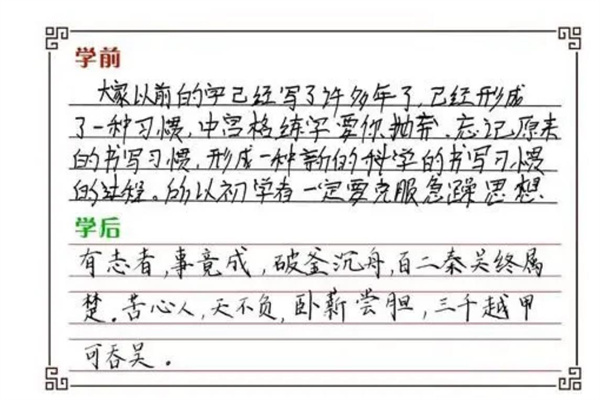 学前
大家以前的字已经写了许多年了,已经形成
了一种习惯,中宫格练字要你抛弃、忘记原来
的书写习惯,形成一种新的科学的书写习惯
的过程。所以初学者一定要克服急躁思想
学后
有志者,事竟成,破釜沉舟,百二秦吴终属
楚。苦心人,天不负,卧薪尝胆,三千越甲
可吞吴。